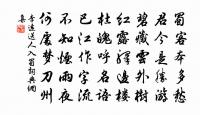 蜀客本多愁
君今是勝遊
碧藏雲外樹
紅露驛邊樓
杜魄呼名語
巴江作字流
不知煙雨夜
何處夢刀州
李遠送人入蜀詞典網
集